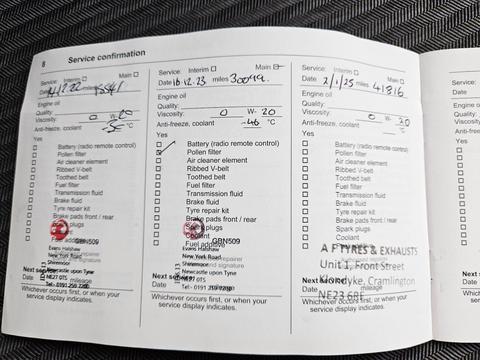 8 Service confirmation
Service: Interim ☐ Main ☐
Date 14.12.22 miles
Engine oil
Quality:
Viscosity: 0 W- 20
Anti-freeze, coolant °C
Yes
☐ Battery (radio remote control)
☐ Pollen filter
☐ Air cleaner element
☐ Ribbed V-belt
☐ Toothed belt
☐ Fuel filter
☐ Transmission fluid
☐ Brake fluid
☐ Tyre repair kit
☐ Brake pads front / rear
☐ Spark plugs
☐ Coolant
☐ Fuel additive
GBN509
Evans Halshaw
New York Road
Shiremoor
Newcastle upon Tyne
NE27 0TS
Tel:- 0191 259 7200
Next service:
Date mileage
Whichever occurs first, or when your
service display indicates.
Service: Interim ☐ Main
Date 18.12.23 miles
Engine oil
Quality:
Viscosity: 0 W- 20
Anti-freeze, coolant -46 °C
Yes
☐ Battery (radio remote control)
☐ Pollen filter
☐ Air cleaner element
☐ Ribbed V-belt
☐ Toothed belt
☐ Fuel filter
☐ Transmission fluid
☐ Brake fluid
☐ Tyre repair kit
☐ Brake pads front / rear
☐ Spark plugs
☐ Coolant
☐ Fuel additive
GBN509
Evans Halshaw
New York Road
Shiremoor
Newcastle upon Tyne
NE27 0TS
Tel:- 0191 259 7200
Next service:
Date mileage
Whichever occurs first, or when your
service display indicates.
Service: Interim ☐ Main ☐
Date 2/1/25 miles 41816
Engine oil
Quality:
Viscosity: 0 W- 20
Anti-freeze, coolant °C
Yes
☐ Battery (radio remote control)
☐ Pollen filter
☐ Air cleaner element
☐ Ribbed V-belt
☐ Toothed belt
☐ Fuel filter
☐ Transmission fluid
☐ Brake fluid
☐ Tyre repair kit
☐ Brake pads front / rear
☐ Spark plugs
☐ Coolant
A F TYRES & EXHAUSTS
Unit 1, Front Street
Klondyke, Cramlington
NE23 6RF
Next service:
Date mileage
Whichever occurs first, or when your
service display indicates.